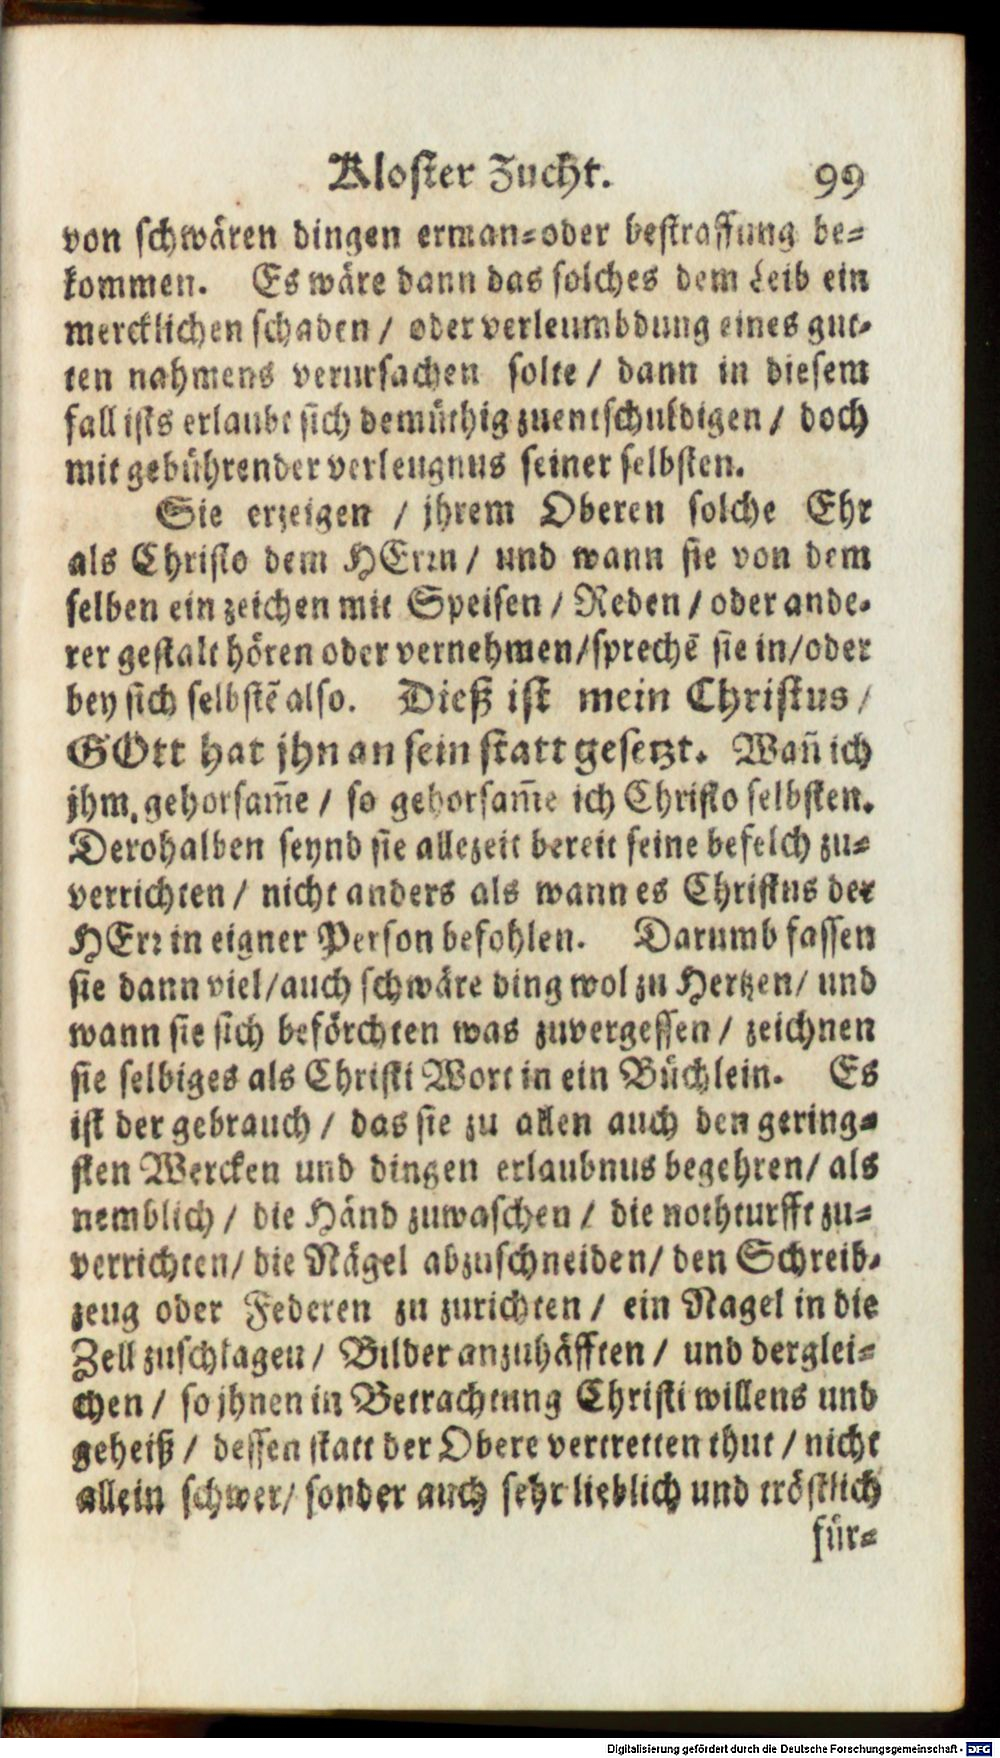 Kloster Zucht. 99
von schwären dingen erman-oder bestraffung be-
kommen. Es wäre dann das solches dem Leib ein
mercklichen schaden / oder verleumbdung eines gut-
ten nahmens verursachen solte / dann in diesem
fall ists erlaubt sich demüthig zuentschuldigen / doch
mit gebührender verleugnus seiner selbsten.
Sie erzeigen / jhrem Oberen solche Ehr
als Christo dem HErrn / und wann sie von dem
selben ein zeichen mit Speisen / Reden / oder ande-
rer gestalt hören oder vernehmen/sprechē sie in/oder
bey sich selbstē also. Dieß ist mein Christus /
GOtt hat jhn an sein statt gesetzt. Wañ ich
jhm gehorsam̄e / so gehorsam̄e ich Christo selbsten.
Derohalben seynd sie allezeit bereit seine befelch zu-
verrichten / nicht anders als wann es Christus der
HErr in eigner Person befohlen. Darumb fassen
sie dann viel/auch schwäre ding wol zu Hertzen/ und
wann sie sich beförchten was zuvergessen / zeichnen
sie selbiges als Christi Wort in ein Büchlein. Es
ist der gebrauch / das sie zu allen auch den gering-
sten Wercken und dingen erlaubnus begehren/ als
nemblich / die Händ zuwaschen / die nothturfft zu-
verrichten/ die Nägel abzuschneiden/ den Schreib-
zeug oder Federen zu zurichten / ein Nagel in die
Zell zuschlagen / Bilder anzuhäfften / und derglei-
chen / so jhnen in Betrachtung Christi willens und
geheiß / dessen statt der Obere vertretten thut / nicht
allein schwer/ sonder auch sehr lieblich und tröstlich
für-
Digitalisierung gefördert durch die Deutsche Forschungsgemeinschaft - DFG